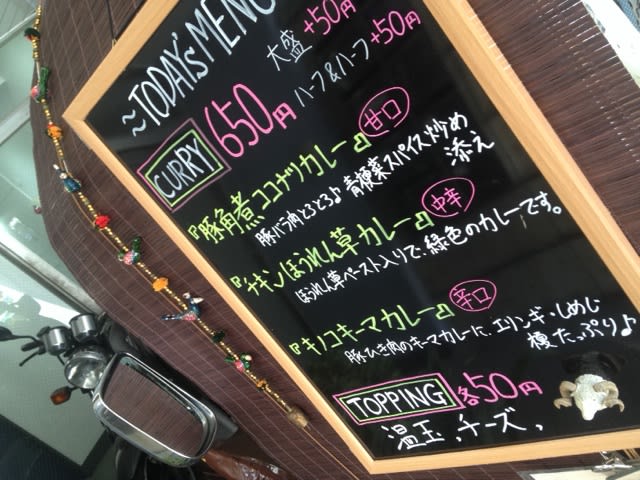 ~TODAY'S MENU
大盛 +50円
ハーフ&ハーフ +50円
CURRY 650円
『豚角煮ココナツカレー』 甘口
豚バラ肉とろとろ♪ 青梗菜スパイス炒め
添え
『チキンほうれん草カレー』 中辛
ほうれん草ペースト入りで、緑色のカレーです。
『キノコキーマカレー』 辛口
豚ひき肉のキーマカレーに、エリンギ・しめじ
たっぷり♪
TOPPING 各50円
温玉、チーズ、